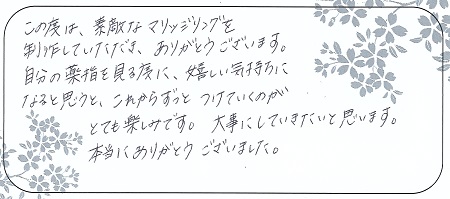 この度は、素敵な マリッジリングを
制作していただき、ありがとうございます。
自分の薬指を見る度に、嬉しい気持ちに
なると思うと、これからずっと つけていくのが
とても楽しみです。 大事にしていきたいと思います。
本当にありがとうございました。